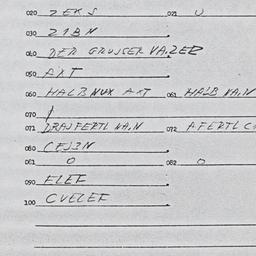 020 ZEKS 021 U
030 ZIBN
040 DER GRUSSER VAZER
050 AXT
060 HALB NUX AXT 061 HALB NAIN
070 /
071 DRAJFERTL NAIN 072 AFERTL
080 CEJJN
081 0 082 0
090 ELEF
100 CVELEF